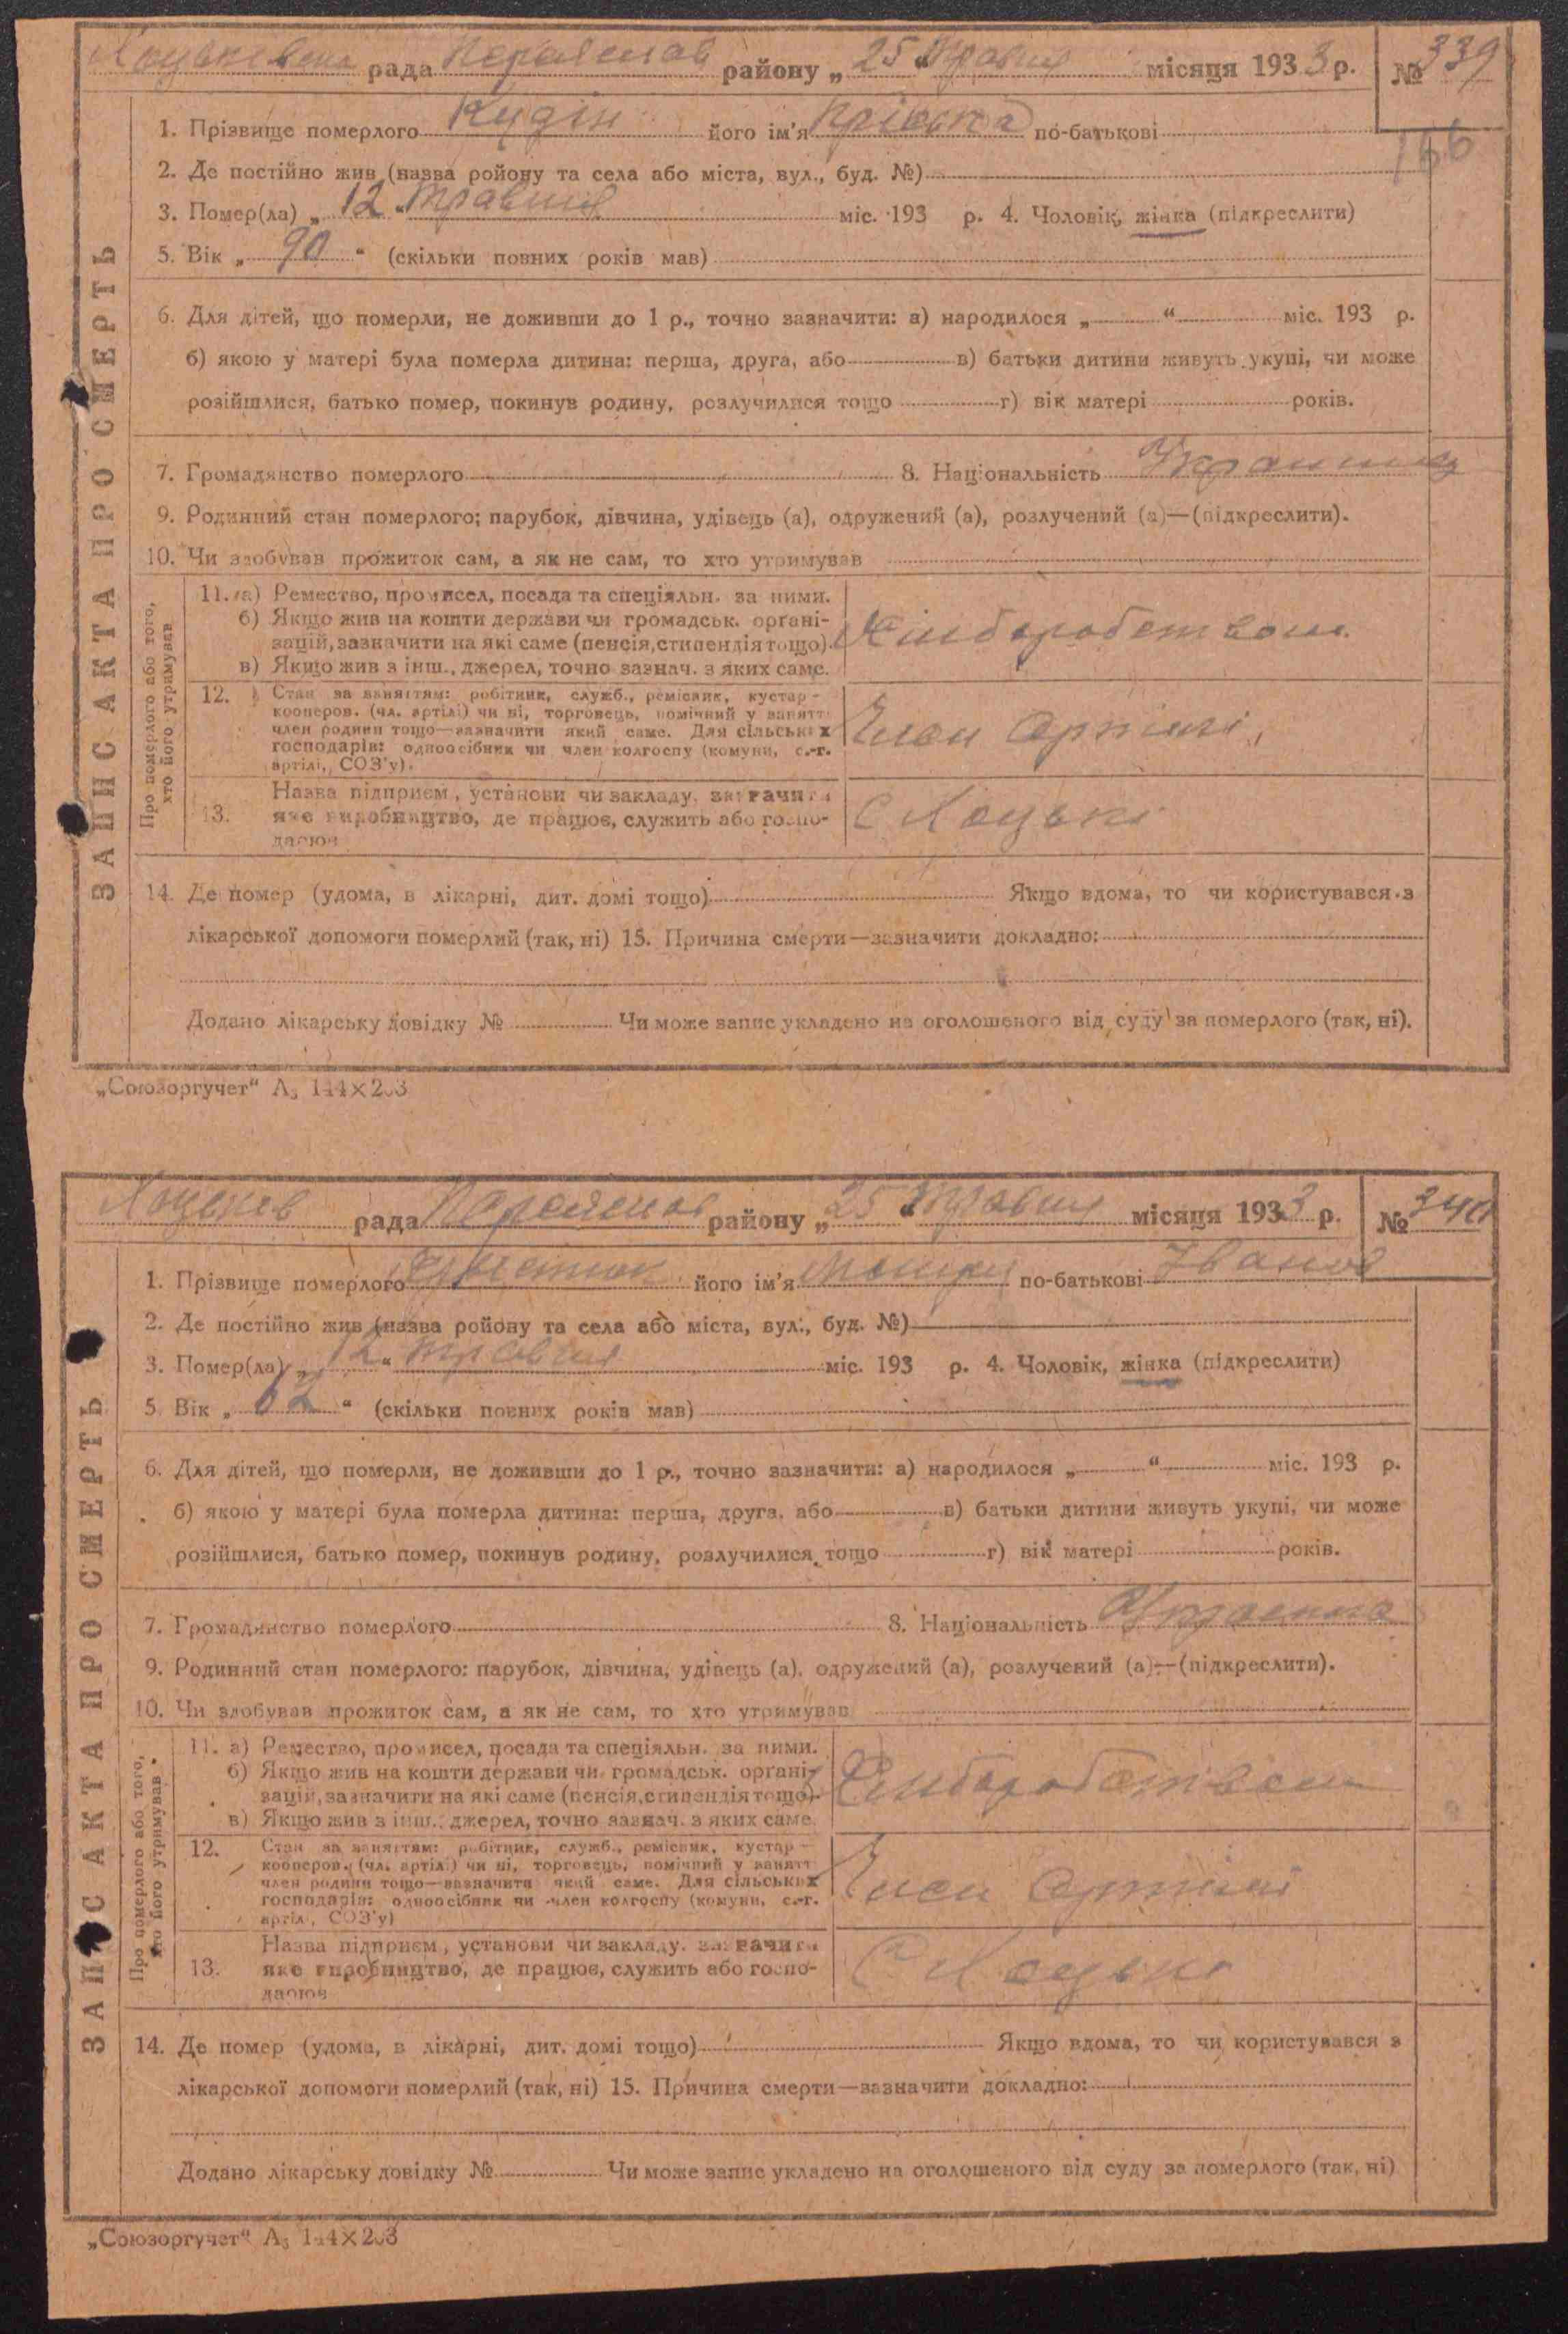 рада Переяслав району „ 25 “ Травня місяця 1933 р. № 339
166
1. Прізвище померлого Кудін його ім'я по-батькові
2. Де постійно жив (назва ройону та села або міста, вул., буд. №)
3. Помер(ла) „ 12 “ травня міс. 193 р. 4. Чоловік, жінка (підкреслити)
5. Вік „ 90 “ (скільки повних років мав)
6. Для дітей, що померли, не доживши до 1 р., точно зазначити: а) народилося „ “ міс. 193 р.
б) якою у матері була померла дитина: перша, друга, або в) батьки дитини живуть укупі, чи може
розійшлися, батько помер, покинув родину, розлучилися тощо г) вік матері років.
7. Громадянство померлого 8. Національність
9. Родинний стан померлого; парубок, дівчина, удівець (а), одружений (а), розлучений (а)—(підкреслити).
10. Чи здобував прожиток сам, а як не сам, то хто утримував
ЗАПИС АКТА ПРО СМЕРТЬ
Про померлого або того,
хто його утримував
11. а) Ремество, промисел, посада та спеціяльн. за ними.
б) Якщо жив на кошти держави чи громадськ. органі-
зацій, зазначити на які саме (пенсія, стипендія тощо).
в) Якщо жив з інш., джерел, точно зазнач. з яких саме.
12. Стан за заняттям: робітник, служб., ремісник, кустар -
кооперов. (чл. артілі) чи ні, торговець, помічний у занятті
член родини тощо—зазначити який саме. Для сільських
господарів: одноосібник чи член колгоспу (комуни, с.-г.
артілі, СОЗ'у).
Член Артілі
Назва підприєм, установи чи закладу, зазначити
13. яке виробництво, де працює, служить або госпо-
дарює
С Хоцьки
14. Де помер (удома, в лікарні, дит. домі тощо) Якщо вдома, то чи користувався з
лікарської допомоги померлий (так, ні) 15. Причина смерти—зазначити докладно:
Додано лікарську довідку № Чи може запис укладено на оголошеного від суду за померлого (так, ні).
„Союзоргучет“ А₃ 144×203
рада Переяслав району „ 25 “ Травня місяця 1933 р. № 340
1. Прізвище померлого його ім'я по-батькові Іванов
2. Де постійно жив (назва ройону та села або міста, вул., буд. №)
3. Помер(ла) „ 12 “ травня міс. 193 р. 4. Чоловік, жінка (підкреслити)
5 Вік „ 62 “ (скільки повних років мав)
6. Для дітей, що померли, не доживши до 1 р., точно зазначити: а) народилося „ “ міс. 193 р.
б) якою у матері була померла дитина: перша, друга, або в) батьки дитини живуть укупі, чи може
розійшлися, батько помер, покинув родину, розлучилися тощо г) вік матері років.
7. Громадянство померлого 8. Національність
9. Родинний стан померлого: парубок, дівчина, удівець (а), одружений (а), розлучений (а)—(підкреслити).
10. Чи здобував прожиток сам, а як не сам, то хто утримував
ЗАПИС АКТА ПРО СМЕРТЬ
Про померлого або того,
хто його утримував
11. а) Ремество, промисел, посада та спеціяльн. за ними.
б) Якщо жив на кошти держави чи громадськ. органі-
зацій, зазначити на які саме (пенсія, стипендія тощо).
в) Якщо жив з інш., джерел, точно зазнач. з яких саме.
12. Стан за заняттям: робітник, служб., ремісник, кустар —
кооперов. (чл. артілі) чи ні, торговець, помічний у занятті
член родини тощо—зазначити який саме. Для сільських
господарів: одноосібник чи член колгоспу (комуни, с.-г.
артілі, СОЗ'у)
Член Артілі
Назва підприєм, установи чи закладу, зазначити
13. яке виробництво, де працює, служить або госпо-
дарює
С Хоцьки
14. Де помер (удома, в лікарні, дит. домі тощо) Якщо вдома, то чи користувався з
лікарської допомоги померлий (так, ні) 15. Причина смерти—зазначити докладно:
Додано лікарську довідку № Чи може запис укладено на оголошеного від суду за померлого (так, ні)
„Союзоргучет“ А₃ 144×203